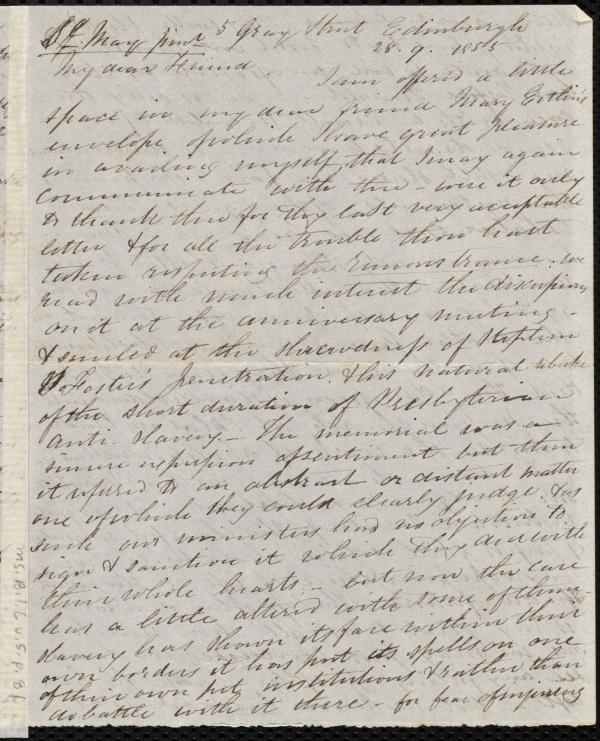 Sl. May Junr 5 Gray Street Edinburgh
28. 9. 1855
My dear Friend
I am offered a little
space in my dear friend Mary Estlin's
envelope of which I have great pleasure
in availing myself, that I may again
communicate with thee - were it only
to thank thee for thy last very acceptable
letter & for all the trouble thou hast
taken respecting the remonstrance. we
read with much interest the discussions
on it at the anniversary meeting -
& smiled at the shrewdness of Stephen
S Foster's penetration. & his natural rebuke
of the short duration of Presbyterian
anti-slavery - The memorial was a
sincere expression of sentiment but then
it refered to an abstract or distant matter
one of which they could clearly judge. & as
such our ministers had no objection to
sign & sanction it which they did with
their whole hearts - but now the case
has a little altered with some of them -
slavery has shown its face within their
own borders it has put its spells on one
of their own pet institutions & rather than
do battle with it there - for fear of injuring
Ms.B.1.6 v.5 p.81